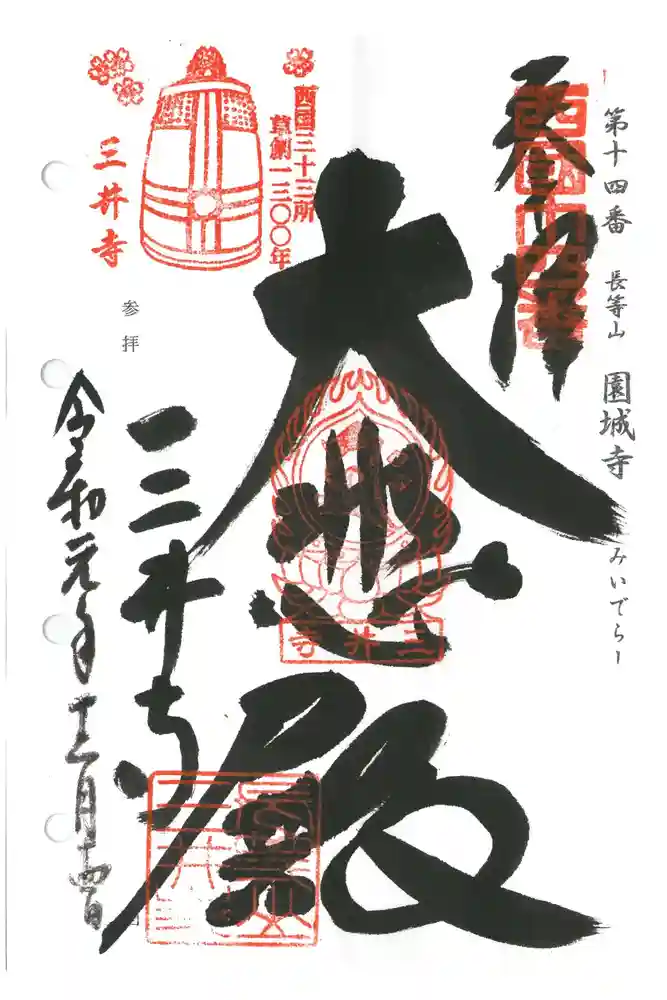 第十四番 長等山 園城寺 みいでらー
奉拝
西国十四番
大悲殿
三井寺
西国三十三所
草創一三〇〇年
三井寺
三井寺
参拝
令和元年十二月十四日